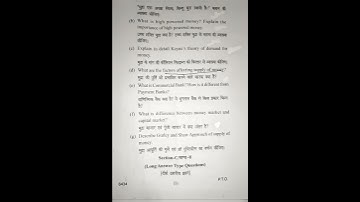 "मुद्रा एक अच्छा सेवक, किन्तु बुरा स्वामी है।" कथन की
व्याख्या कीजिए।
(b) What is high powered money? Explain the
importance of high powered money.
उच्च शक्ति मुद्रा क्या है? उच्च शक्ति मुद्रा के महत्व की व्याख्या
कीजिए।
(c) Explain in detail Keyne's theory of demand for
money.
मुद्रा की मांग की कीन्सियन सिद्धान्त की विस्तार से व्याख्या कीजिए।
(d) What are the factors affecting supply of money?
मुद्रा की पूर्ति को प्रभावित करने वाले कारक क्या हैं?
(e) What is Commercial Bank? How is it different from
Payment Banks?
वाणिज्यिक बैंक क्या है? ये भुगतान बैंक से किस प्रकार भिन्न
है?
(f) What is difference between money market and
capital market?
मुद्रा बाजार एवं पूँजी बाजार में क्या अंतर है?
(g) Describe Gurley and Shaw Approach of supply of
money.
मुद्रा आपूर्ति की गुर्ले एवं शॉ दृष्टिकोण का वर्णन कीजिए।
Section-C/खण्ड-स
(Long Answer Type Questions)
(दीर्घ उत्तरीय प्रश्न)
P.T.O.